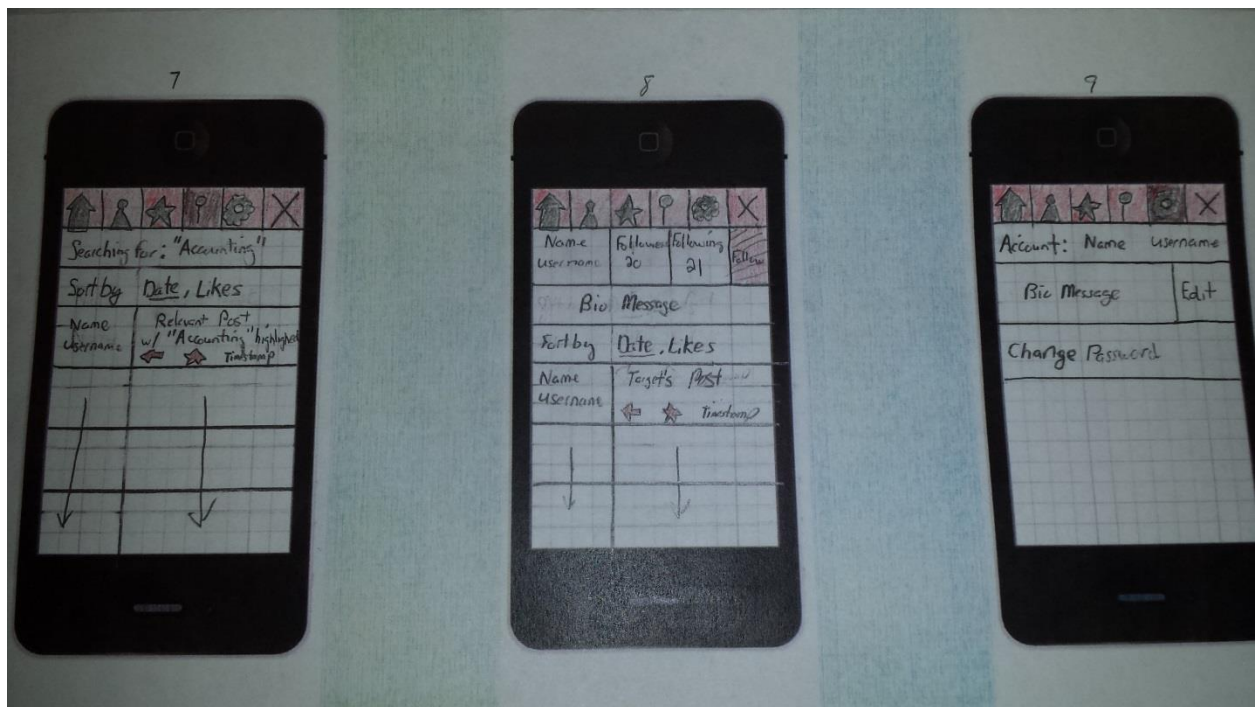 7
Searching for: "Accounting"
Sort by Date, Likes
Name
username
Relevant Post
w/ "Accounting" highlighted
Timestamp
8
Name
username
Followers
20
Following
21
Follow
Bio Message
Sort by Date, Likes
Name
username
Target's Post
Timestamp
9
Account: Name username
Bio Message
Edit
Change Password